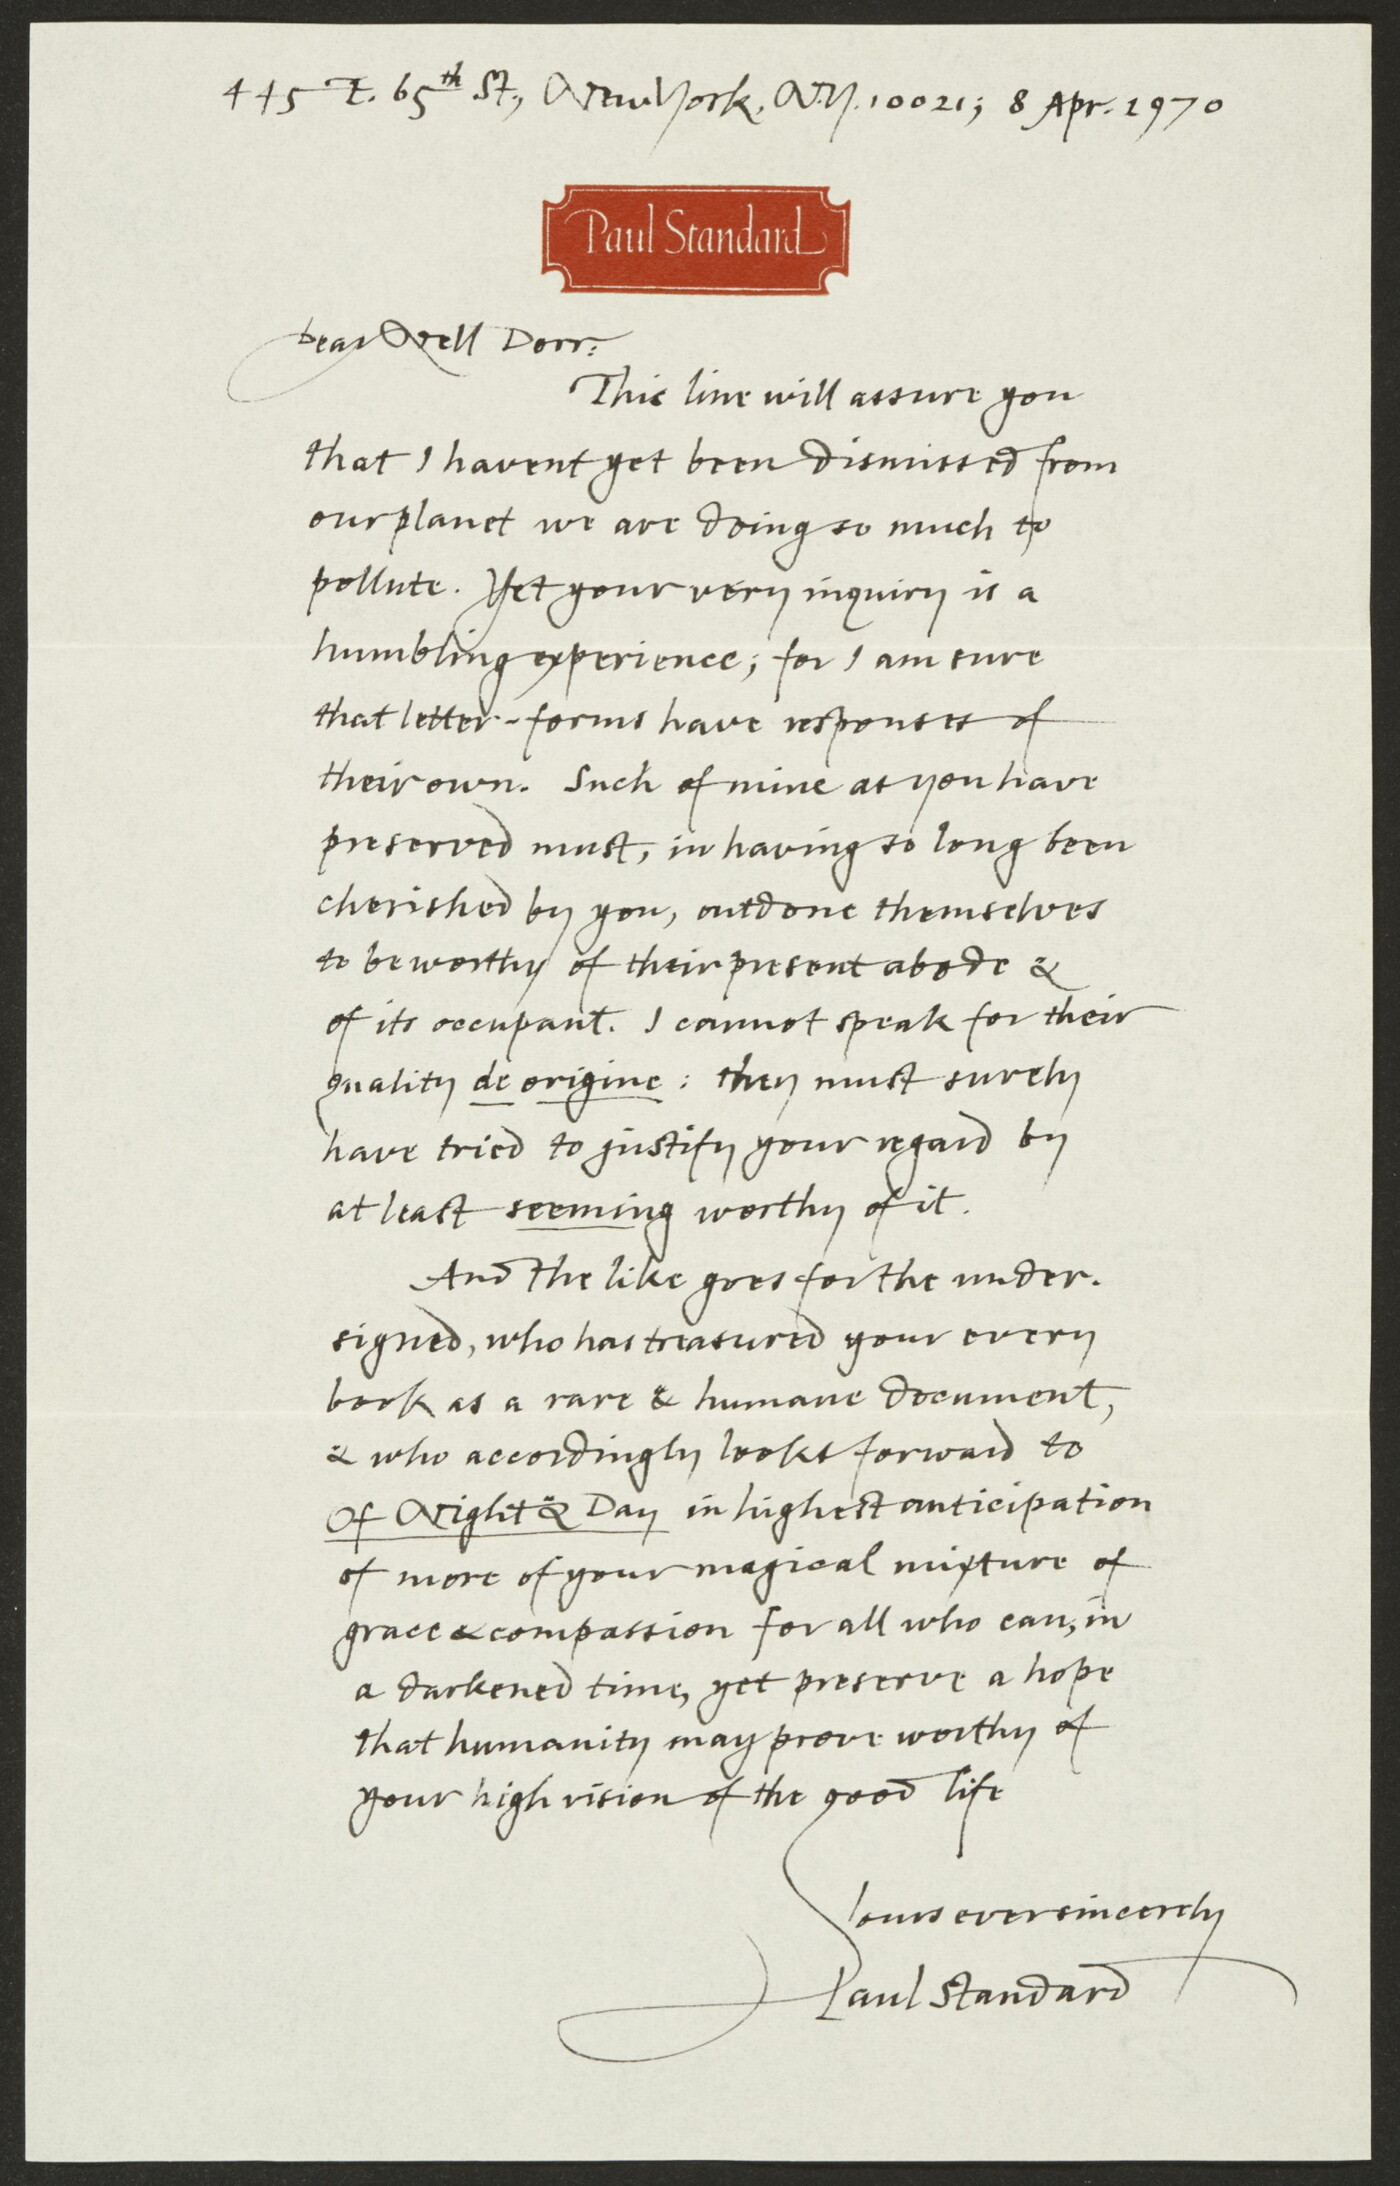 445 E. 65th St., New York, N.Y. 10021; 8 Apr. 1970
Paul Standard
Dear Nell Dorr:
This line will assure you
that I havent yet been dismissed from
our planet we are doing so much to
pollute. Yet your very inquiry is a
humbling experience; for I am sure
that letter-forms have responses of
their own. Such of mine as you have
preserved must, in having so long been
cherished by you, outdone themselves
to be worthy of their present abode &
of its occupant. I cannot speak for their
quality de origine: they must surely
have tried to justify your regard by
at least seeming worthy of it.
And the like goes for the under-
signed, who has treasured your every
book as a rare & humane document,
& who accordingly looks forward to
Of Night & Day in highest anticipation
of more of your magical mixture of
grace & compassion for all who can, in
a darkened time, yet preserve a hope
that humanity may prove worthy of
your high vision of the good life
Yours ever sincerely
Paul Standard